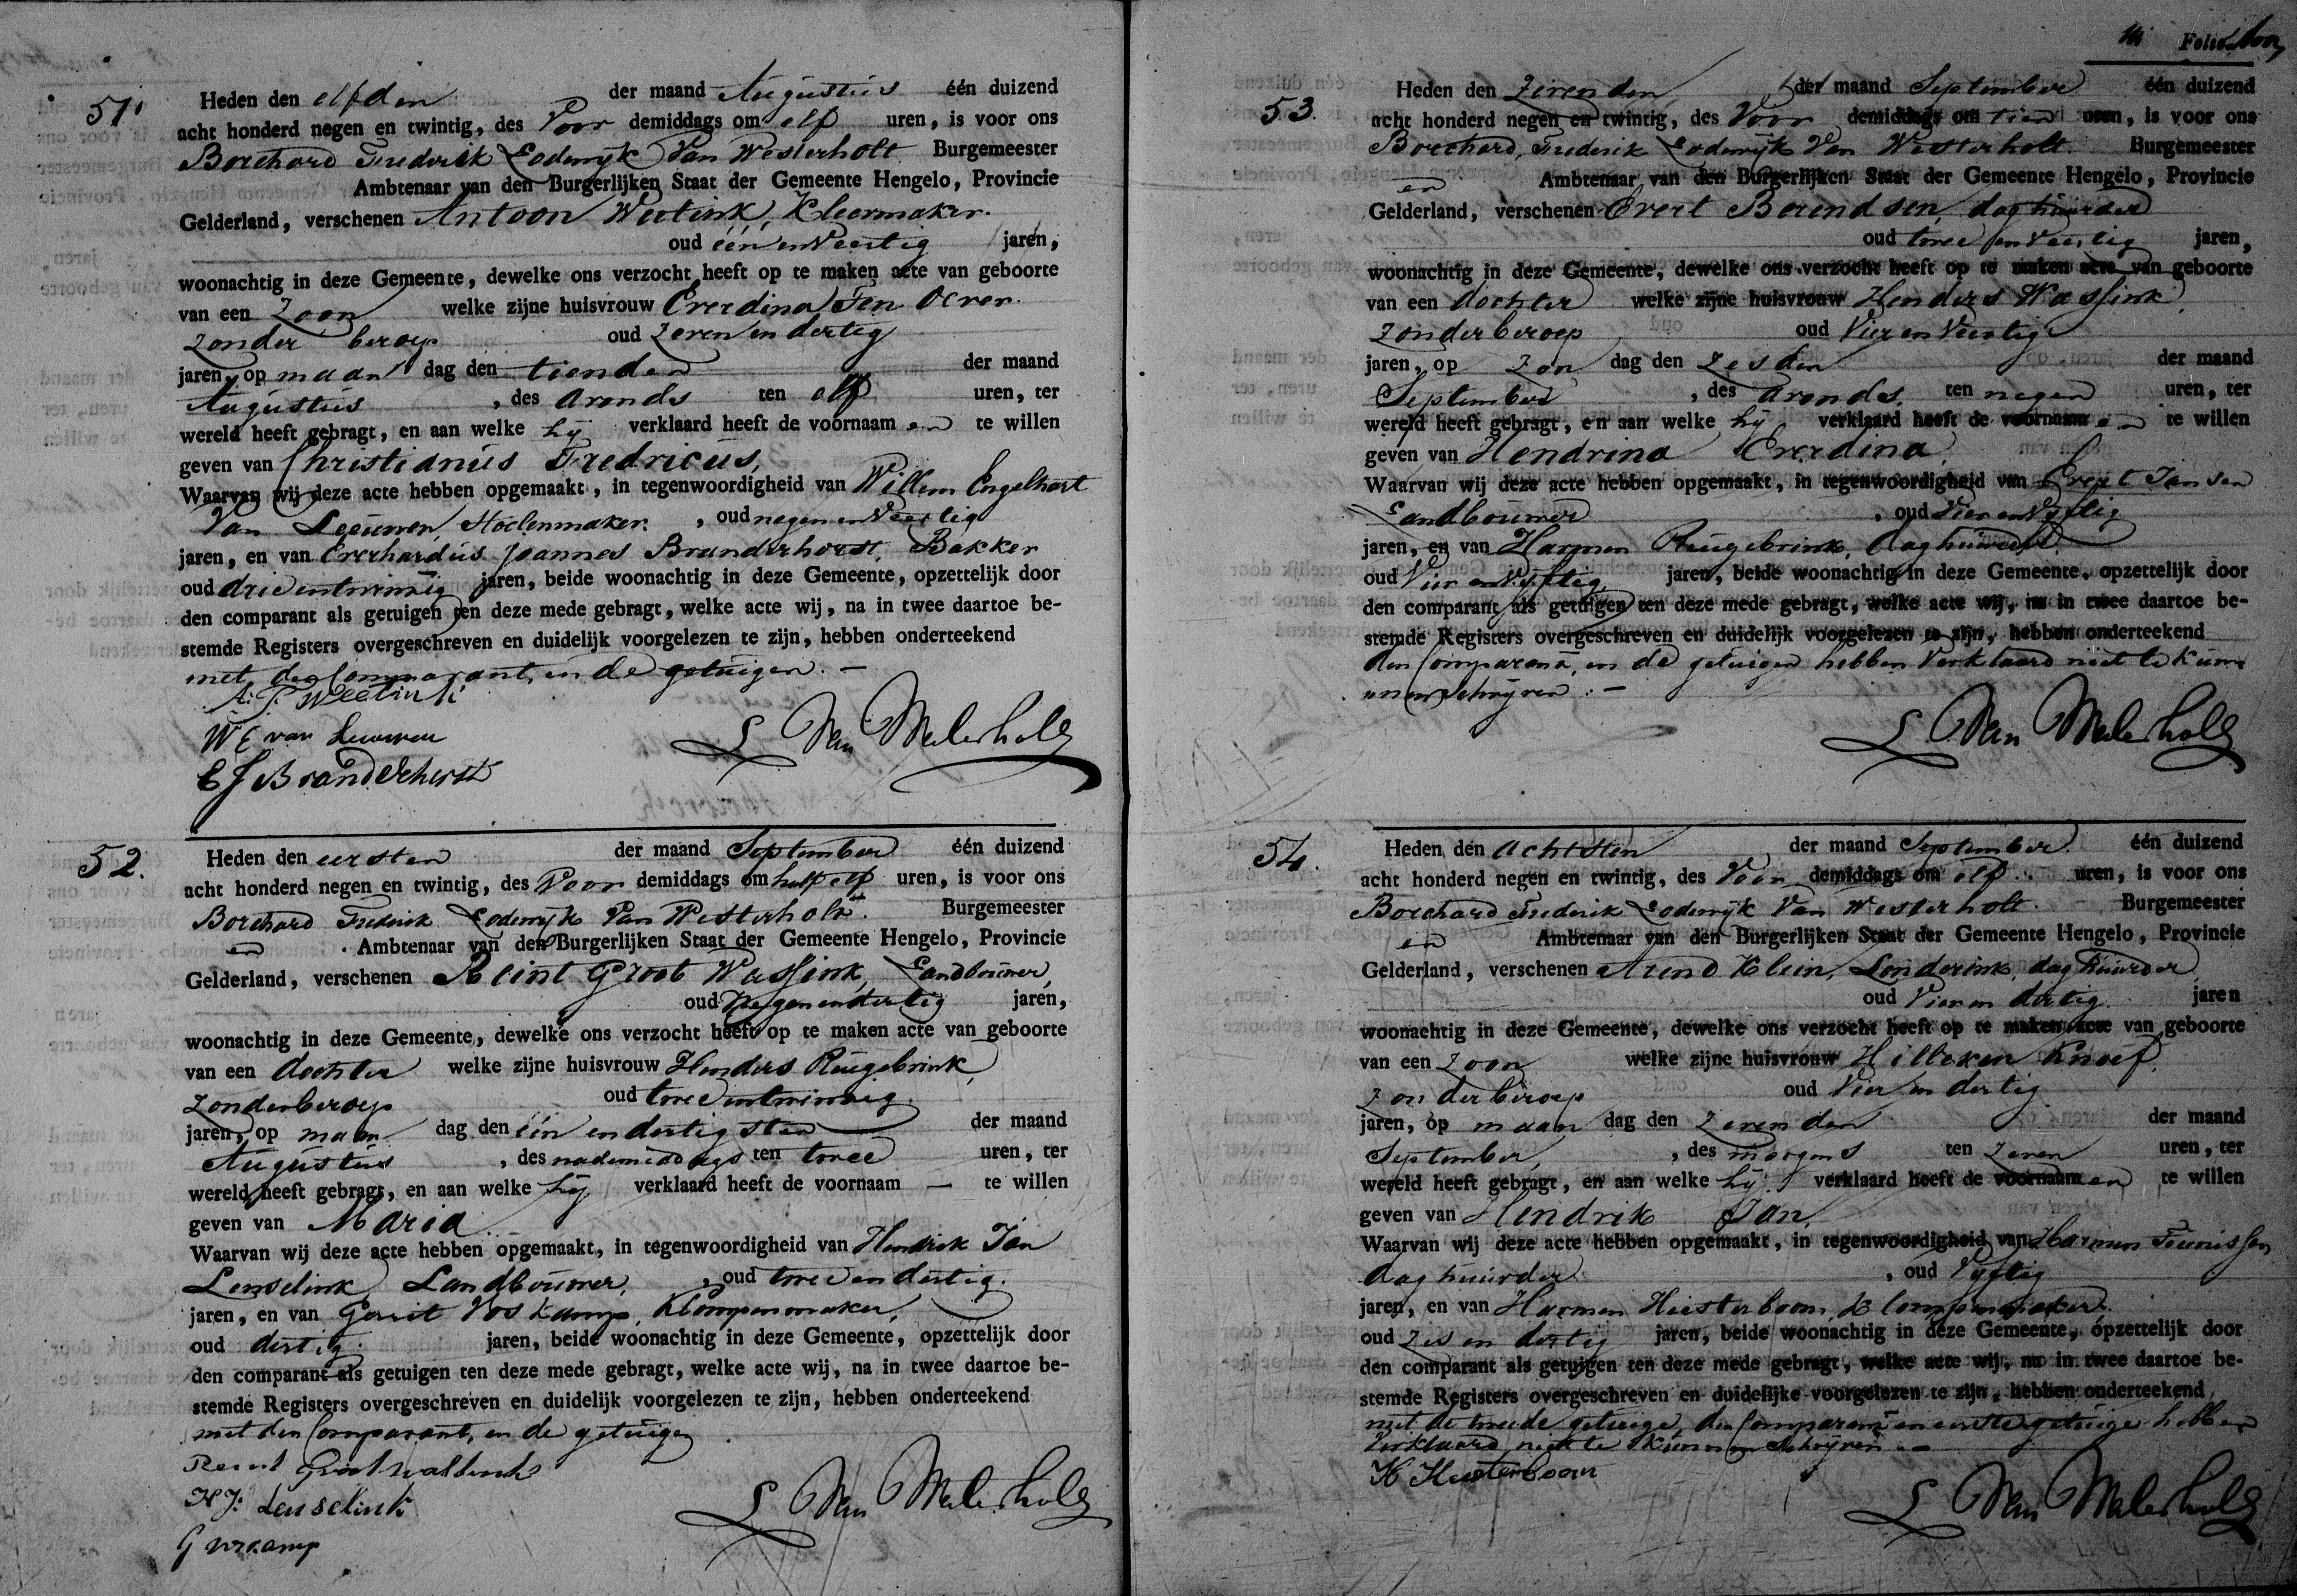 51.
Heden den elfden der maand Augustus één duizend
acht honderd negen en twintig, des Voor demiddags om elf uren, is voor ons
Borchard Frederik Lodewyk Van Westerholt Burgemeester
Ambtenaar van den Burgerlijken Staat der Gemeente Hengelo, Provincie
Gelderland, verschenen Antoon Weetink, Kleermaker.
oud één en Veertig jaren,
woonachtig in deze Gemeente, dewelke ons verzocht heeft op te maken acte van geboorte
van een Zoon welke zijne huisvrouw Everdina Ten Oever.
Zonder beroep oud Zeven en dertig
jaren, op maan dag den tienden der maand
Augustus, des avonds ten elf uren, ter
wereld heeft gebragt, en aan welke hij verklaard heeft de voornaam en te willen
geven van Christianus Fredricus,
Waarvan wij deze acte hebben opgemaakt, in tegenwoordigheid van Willem Engelhart
Van Leeuwen, Stoelenmaker, oud negen en Veertig
jaren, en van Everhardus Joannes Branderhorst, Bakker
oud drie entwintig jaren, beide woonachtig in deze Gemeente, opzettelijk door
den comparant als getuigen ten deze mede gebragt, welke acte wij, na in twee daartoe be-
stemde Registers overgeschreven en duidelijk voorgelezen te zijn, hebben onderteekend
met den Comparant, en de getuigen. —
A: T. Weetink
W E van Leuwen
E J Branderhorst
L Van Westerholt
52.
Heden den eersten der maand September één duizend
acht honderd negen en twintig, des Voor demiddags om half elf uren, is voor ons
Borchard Frederik Lodewyk Van Westerholt. Burgemeester
en Ambtenaar van den Burgerlijken Staat der Gemeente Hengelo, Provincie
Gelderland, verschenen Reint Groot Wassink, Landbouwer,
oud Negen en dertig jaren,
woonachtig in deze Gemeente, dewelke ons verzocht heeft op te maken acte van geboorte
van een dochter welke zijne huisvrouw Henders Ruugebrink,
Zonder beroep oud twee entwintig.
jaren, op maan dag den één en dertigsten der maand
Augustus, des nademiddags ten twee uren, ter
wereld heeft gebragt, en aan welke hij verklaard heeft de voornaam — te willen
geven van Maria.
Waarvan wij deze acte hebben opgemaakt, in tegenwoordigheid van Hendrik Jan
Lenselink, Landbouwer, oud twee en dertig.
jaren, en van Gerrit Voskamp, Klompenmaker,
oud dertig. jaren, beide woonachtig in deze Gemeente, opzettelijk door
den comparant als getuigen ten deze mede gebragt, welke acte wij, na in twee daartoe be-
stemde Registers overgeschreven en duidelijk voorgelezen te zijn, hebben onderteekend
met den Comparant, en de getuigen
Reint Groot Wassink
H J: Lenselink
G Voskamp
L Van Westerholt
Folio
53.
Heden den Zevenden der maand September één duizend
acht honderd negen en twintig, des Voor demiddags om tien uren, is voor ons
Borchard, Frederik Lodewyk Van Westerholt. Burgemeester
en Ambtenaar van den Burgerlijken Staat der Gemeente Hengelo, Provincie
Gelderland, verschenen Evert Berendsen, daghuurder
oud twee en Veertig jaren,
woonachtig in deze Gemeente, dewelke ons verzocht heeft op te maken acte van geboorte
van een dochter welke zijne huisvrouw Henders Wassink,
Zonder beroep oud Vier en Veertig
jaren, op Zon dag den Zesden der maand
September, des avonds. ten negen uren, ter
wereld heeft gebragt, en aan welke hij verklaard heeft de voornaam en te willen
geven van Hendrina Everdina,
Waarvan wij deze acte hebben opgemaakt, in tegenwoordigheid van Evert Jansen
Landbouwer, oud Vier en Vyftig
jaren, en van Harmen Ruugebrink, daghuurder.
oud Vier en Vyftig jaren, beide woonachtig in deze Gemeente, opzettelijk door
den comparant als getuigen ten deze mede gebragt, welke acte wij, na in twee daartoe be-
stemde Registers overgeschreven en duidelijk voorgelezen te zijn, hebben onderteekend
den Comparant, en de getuigen hebben Verklaard niet te kun-
nen schryven: —
L Van Westerholt
54.
Heden den Achtsten der maand September één duizend
acht honderd negen en twintig, des Voor demiddags om elf uren, is voor ons
Borchard Frederik Lodewyk Van Westerholt. Burgemeester
en Ambtenaar van den Burgerlijken Staat der Gemeente Hengelo, Provincie
Gelderland, verschenen Arend Klein, Lenderink, daghuurder
oud Vier en dertig. jaren
woonachtig in deze Gemeente, dewelke ons verzocht heeft op te maken acte van geboorte
van een Zoon welke zijne huisvrouw Hilleken Knoef,
Zonder beroep oud Vier en dertig.
jaren, op maan dag den Zevenden der maand
September, des morgens ten Zeven uren, ter
wereld heeft gebragt, en aan welke hij verklaard heeft de voornaam en te willen
geven van Hendrik Jan,
Waarvan wij deze acte hebben opgemaakt, in tegenwoordigheid van Harmen Teunissen
daghuurder, oud Vyftig
jaren, en van Harmen Hiesterboom, Klompenmaker,
oud Zes en dertig jaren, beide woonachtig in deze Gemeente, opzettelijk door
den comparant als getuigen ten deze mede gebragt, welke acte wij, na in twee daartoe be-
stemde Registers overgeschreven en duidelijke voorgelezen te zijn, hebben onderteekend
met de tweede getuige, den Comparant en eerste getuige hebben
Verklaard niet te kunnen Schryven. —
H Hiesterboom
L Van Westerholt